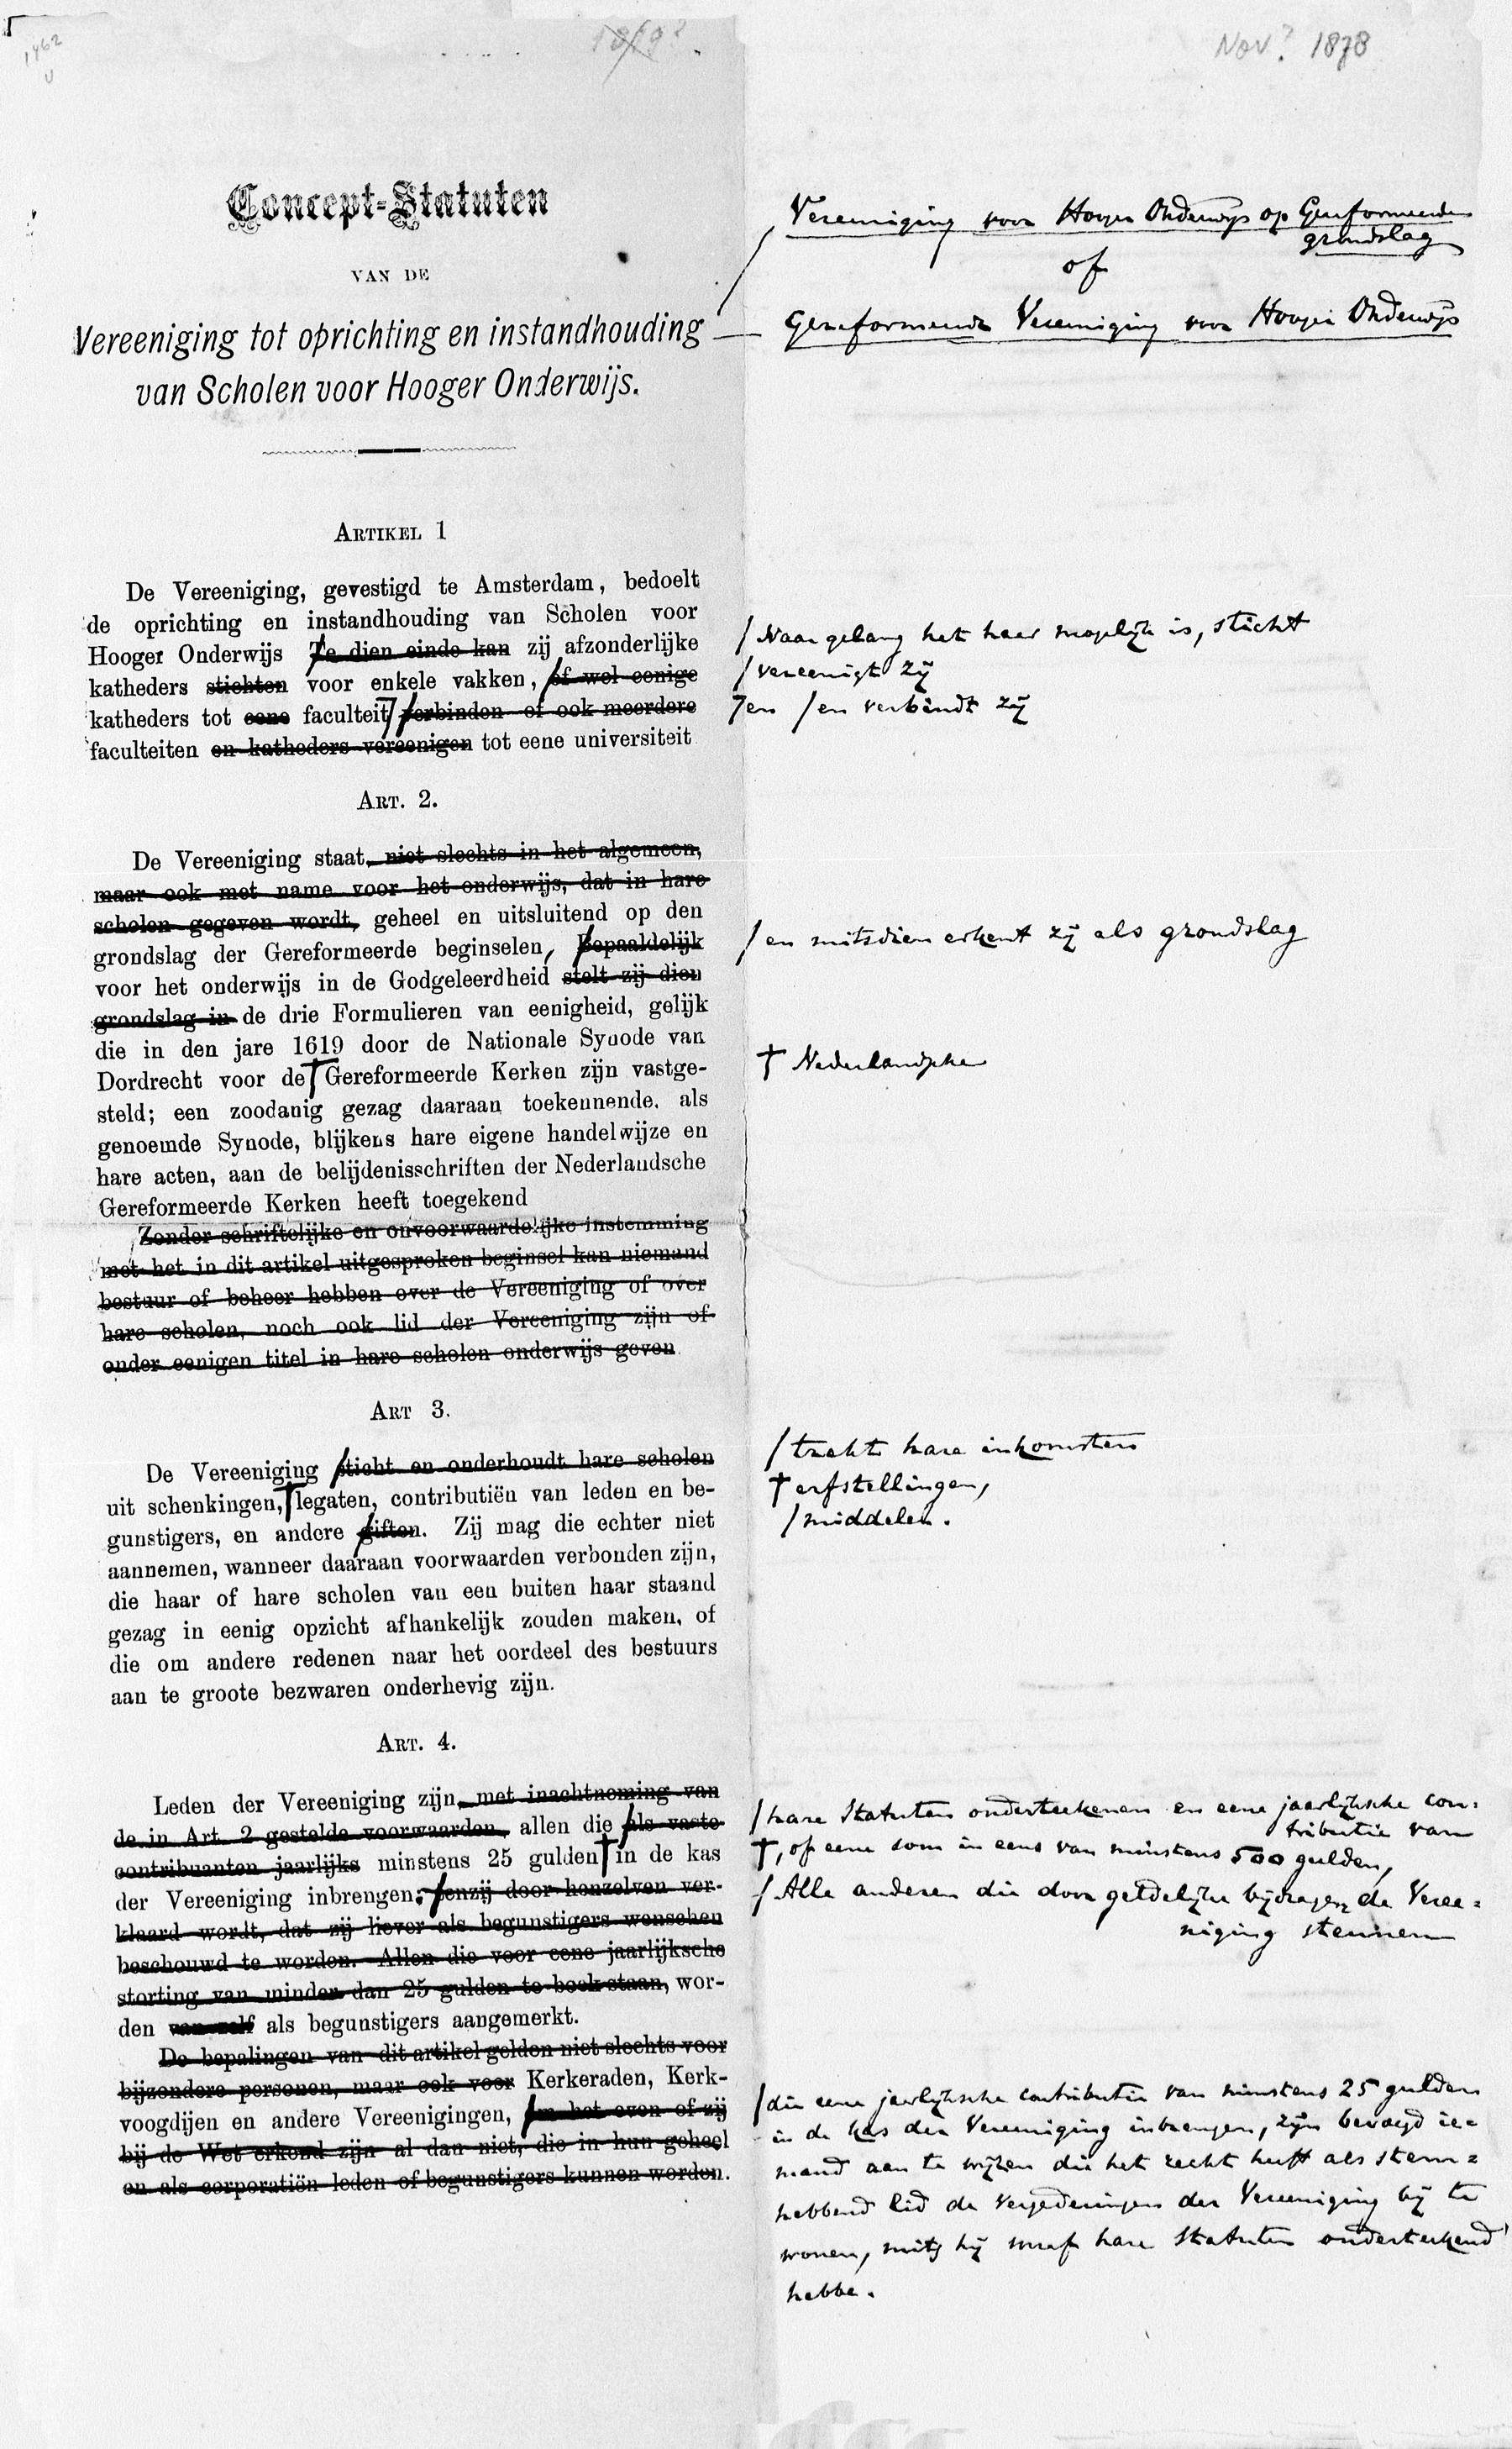 1462
Nov? 1878
Concept-Statuten
VAN DE
Vereeniging tot oprichting en instandhouding
van Scholen voor Hooger Onderwijs.
Vereeniging voor Hooger Onderwijs op Gereformeerden
grondslag
of
Gereformeerde Vereeniging voor Hooger Onderwijs
ARTIKEL 1
De Vereeniging, gevestigd te Amsterdam, bedoelt
de oprichting en instandhouding van Scholen voor
Hooger Onderwijs Te dien einde kan zij afzonderlijke
katheders stichten voor enkele vakken, of wel eenige
katheders tot eene faculteit verbinden of ook meerdere
faculteiten en katheders vereenigen tot eene universiteit
/ Naar gelang het haar mogelijk is, sticht
/ vereenigt zij
7 en / en verbindt zij
ART. 2.
De Vereeniging staat, niet slechts in het algemeen,
maar ook met name voor het onderwijs, dat in hare
scholen gegeven wordt, geheel en uitsluitend op den
grondslag der Gereformeerde beginselen, Bepaaldelijk
voor het onderwijs in de Godgeleerdheid stelt zij dien
grondslag in de drie Formulieren van eenigheid, gelijk
die in den jare 1619 door de Nationale Synode van
Dordrecht voor de † Gereformeerde Kerken zijn vastge-
steld; een zoodanig gezag daaraan toekennende, als
genoemde Synode, blijkens hare eigene handelwijze en
hare acten, aan de belijdenisschriften der Nederlandsche
Gereformeerde Kerken heeft toegekend
Zonder schriftelijke en onvoorwaardelijke instemming
met het in dit artikel uitgesproken beginsel kan niemand
bestuur of beheer hebben over de Vereeniging of over
hare scholen, noch ook lid der Vereeniging zijn of
onder eenigen titel in hare scholen onderwijs geven
/ en mitsdien erkent zij als grondslag
† Nederlandsche
ART 3.
De Vereeniging sticht en onderhoudt hare scholen
uit schenkingen, † legaten, contributiën van leden en be-
gunstigers, en andere giften. Zij mag die echter niet
aannemen, wanneer daaraan voorwaarden verbonden zijn,
die haar of hare scholen van een buiten haar staand
gezag in eenig opzicht afhankelijk zouden maken, of
die om andere redenen naar het oordeel des bestuurs
aan te groote bezwaren onderhevig zijn.
/ trekt hare inkomsten
† erfstellingen,
/ middelen.
ART. 4.
Leden der Vereeniging zijn, met inachtneming van
de in Art. 2 gestelde voorwaarden, allen die als vaste
contribuanten jaarlijks minstens 25 gulden † in de kas
der Vereeniging inbrengen; tenzij door henzelven ver-
klaard wordt, dat zij liever als begunstigers wenschen
beschouwd te worden. Allen die voor eene jaarlijksche
storting van minder dan 25 gulden te boek staan, wor-
den van zelf als begunstigers aangemerkt.
De bepalingen van dit artikel gelden niet slechts voor
bijzondere personen, maar ook voor Kerkeraden, Kerk-
voogdijen en andere Vereenigingen, om het even of zij
bij de Wet erkend zijn al dan niet, die in hun geheel
en als corporatiën leden of begunstigers kunnen worden.
/ hare Statuten onderteekenen en eene jaarlijksche con-
tributie van
†, of eene som in eens van minstens 500 gulden,
/ Alle anderen die door geldelijke bijdragen de Veree-
niging steunen
/ die eene jaarlijksche contributie van minstens 25 gulden
in de kas der Vereeniging inbrengen, zijn bevoegd ie-
mand aan te wijzen die het recht heeft als stem-
hebbend lid de vergaderingen der Vereeniging bij te
wonen, mits hij vooraf hare Statuten onderteekend
hebbe.